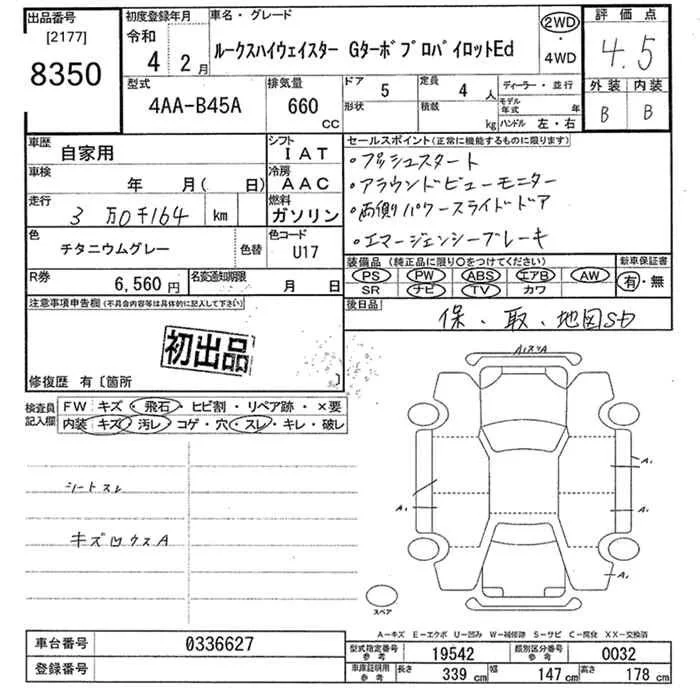 出品番号 初度登録年月 車名・グレード 評価点
[2177]
8350
令和
4 2月
ルークスハイウェイスター GターボプロパイロットEd
2WD
4WD
4.5
型式 排気量 ドア 定員 ディーラー・並行 外装 内装
4AA-B45A 660 CC 5 4 人 B B
形状 積載 kg モデル年式 年
ハンドル 左・右
車歴 自家用 シフト IAT
車検 年 月( 日) 冷房 AAC
走行 3万0千164 km 燃料 ガソリン
色 チタニウムグレー 色替 色コード U17
R券 6,560 円 名変通知期限 月 日
セールスポイント(正常に機能するものに限ります)
・プッシュスタート
・アラウンドビューモニター
・両側パワースライドドア
・エマージェンシーブレーキ
装備品 (純正品に限り○をつけてください) 新車保証書
PS PW ABS エアB AW 有・無
SR ナビ TV カワ
後日品
保、取、地図SD
注意事項申告欄(不具合内容等は具体的に記入して下さい)
初出品
修復歴 有〔箇所 〕
検査員記入欄 FW キズ・飛石・ヒビ割・リペア跡・×要
内装 キズ・汚レ・コゲ・穴・スレ・キレ・破レ
シートスレ
キズ凹ウスA
A1
A1
A1
A1
スペア
A−キズ E−エクボ U−凹み W−補修跡 S−サビ C−腐食 XX−交換済
車台番号 0336627
登録番号
型式指定番号参考 19542 類別区分番号参考 0032
車庫証明用参考 長さ 339 cm 幅 147 cm 高さ 178 cm